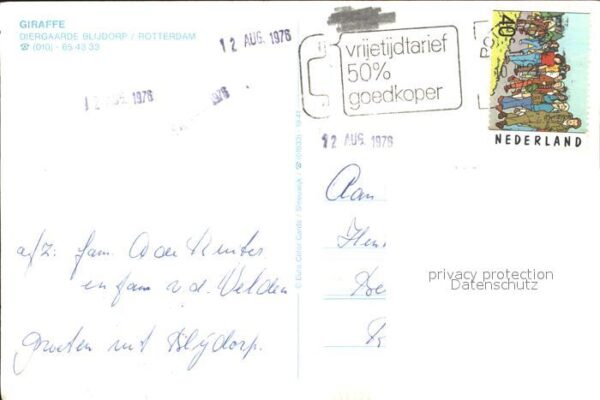 GIRAFFE
DIERGAARDE BLIJDORP / ROTTERDAM
☎ (010) - 65 43 33
12 AUG. 1976
12 AUG. 1976
1976
vrijetijdtarief
50%
goedkoper
PO
40c
NEDERLAND
12 AUG. 1976
a/z: fam.
en fam v.d. Velden
Groeten uit Blijdorp.
Aan
privacy protection
Datenschutz